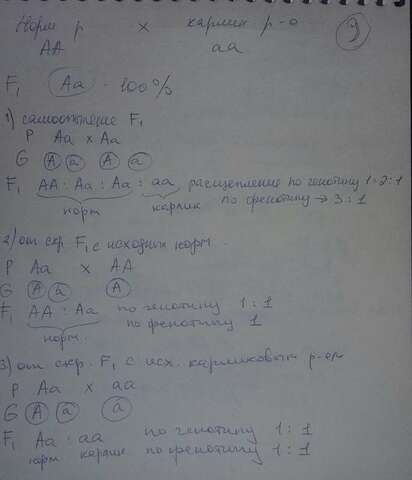 Норм р × карлик р-о 9)
AA aa
F₁ Aa - 100%
1) самоопыление F₁
P Aa × Aa
G A a A a
F₁ AA : Aa : Aa : aa расщепление по генотипу 1:2:1
норм карлик по фенотипу → 3:1
2) от скр. F₁ с исходным норм.
P Aa × AA
G A a A
F₁ AA : Aa по генотипу 1:1
норм. по фенотипу 1
3) от скр. F₁ с исх. карликовым р-ем
P Aa × aa
G A a a
F₁ Aa : aa по генотипу 1:1
норм карлик по фенотипу 1:1